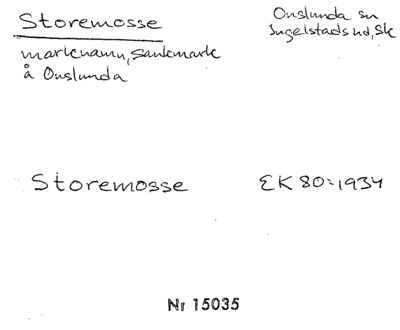 Storemosse
Onslunda sn
Ingelstads hd, Sk
marknamn, sankmark
å Onslunda
Storemosse
EK 80:1934
Nr 15035